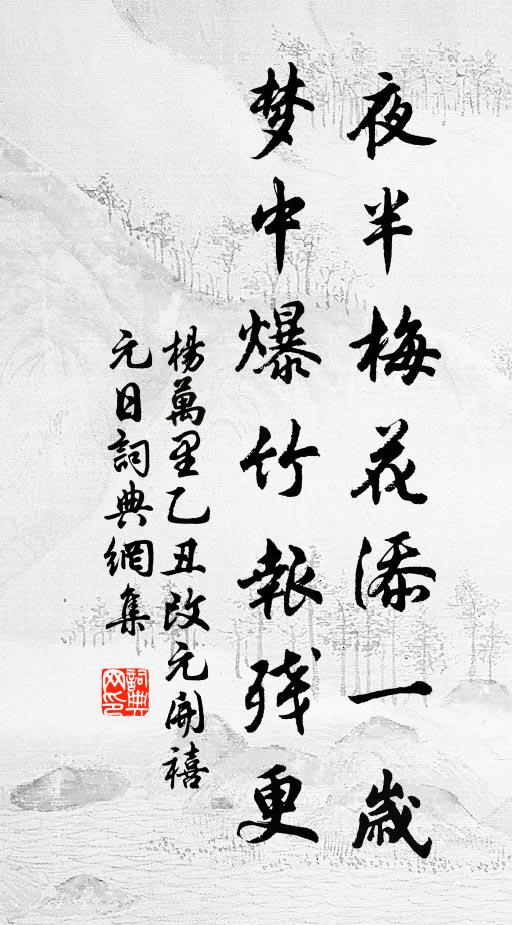 夜半梅花添一歲
梦中爆竹報残更
楊萬里乙丑改元開禧
元日詞典網集
詞典
网印